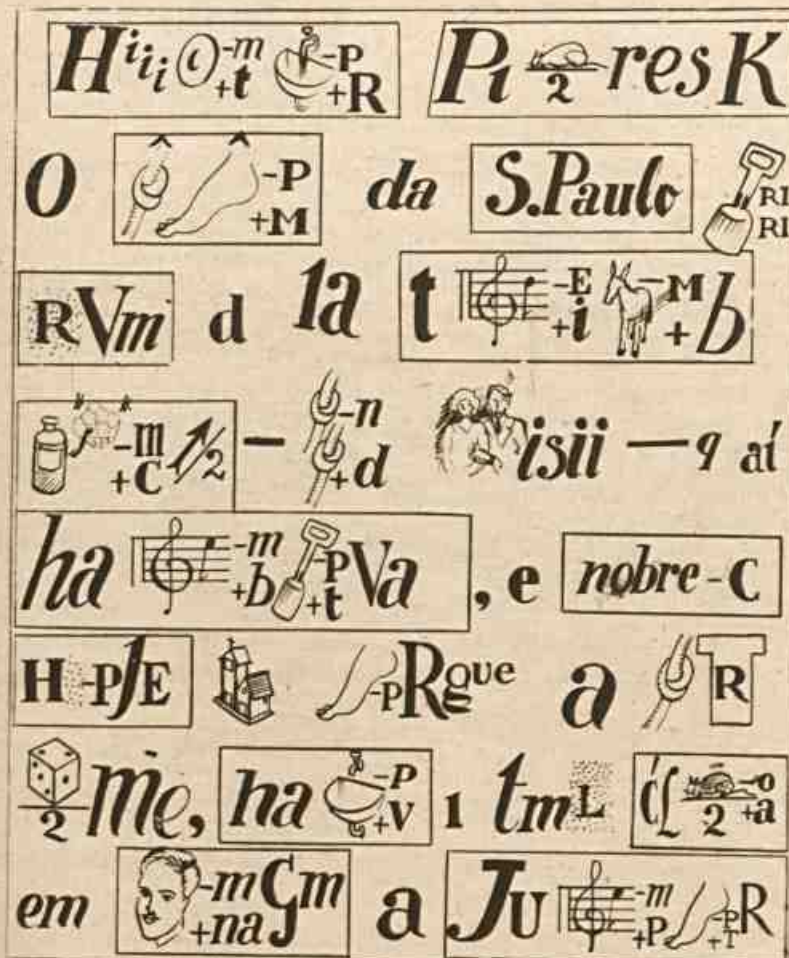 Hiii i -m +t -P +R Pi 2 res K
O -P +M da S.Paulo RI RI
R Vm d 1a t -E +i -M +b
-m +C /2 - -n +d isii - q aí
ha -m +b -P +t Va , e nobre-C
H -P JE -P Rgue a R
2 Me, ha -P +V 1 tm L 2 -o +a
em -m +na Gm a Ju -m +P -P +T R